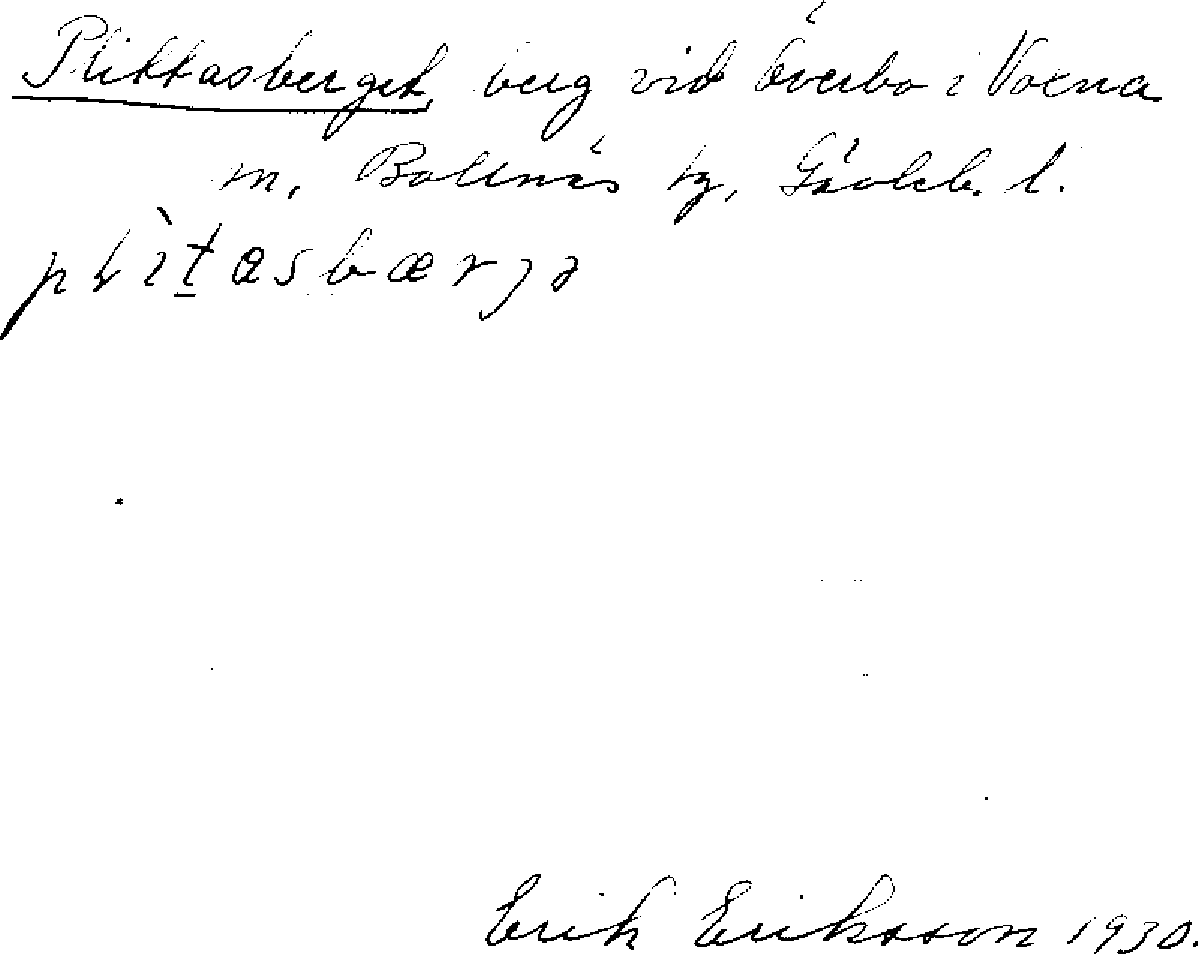 Plittasberget, berg vid Överbo i Voxna
m, Bollnäs tg, Gävleb. l.
plìtasbærjə
Erik Eriksson 1930.